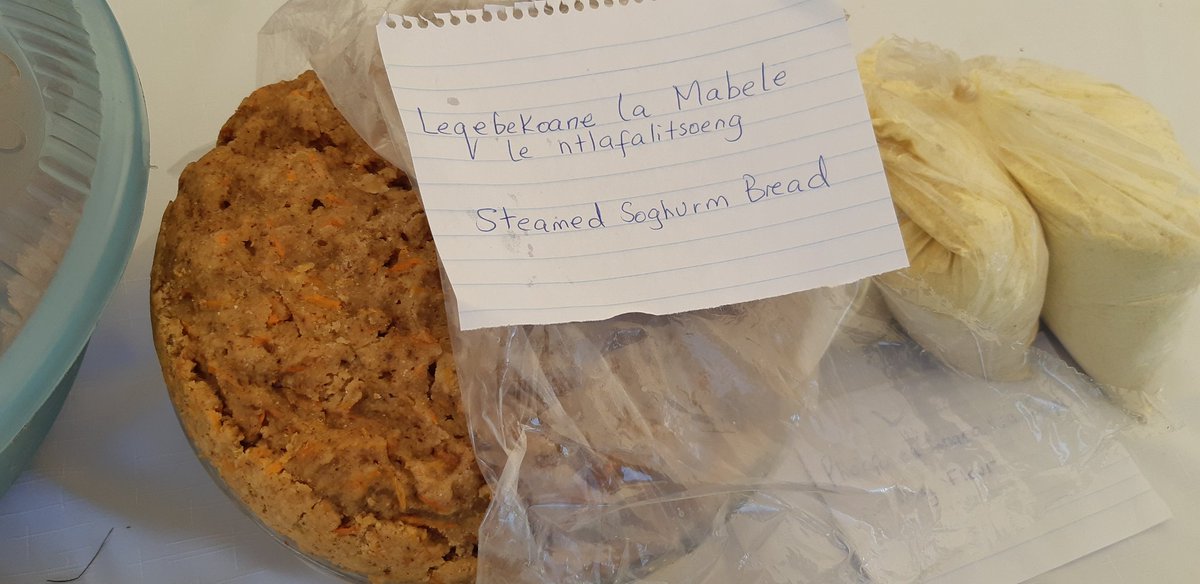 Leqebekoane la Mabele
le ntlafalitsoeng
Steamed Soghurm Bread